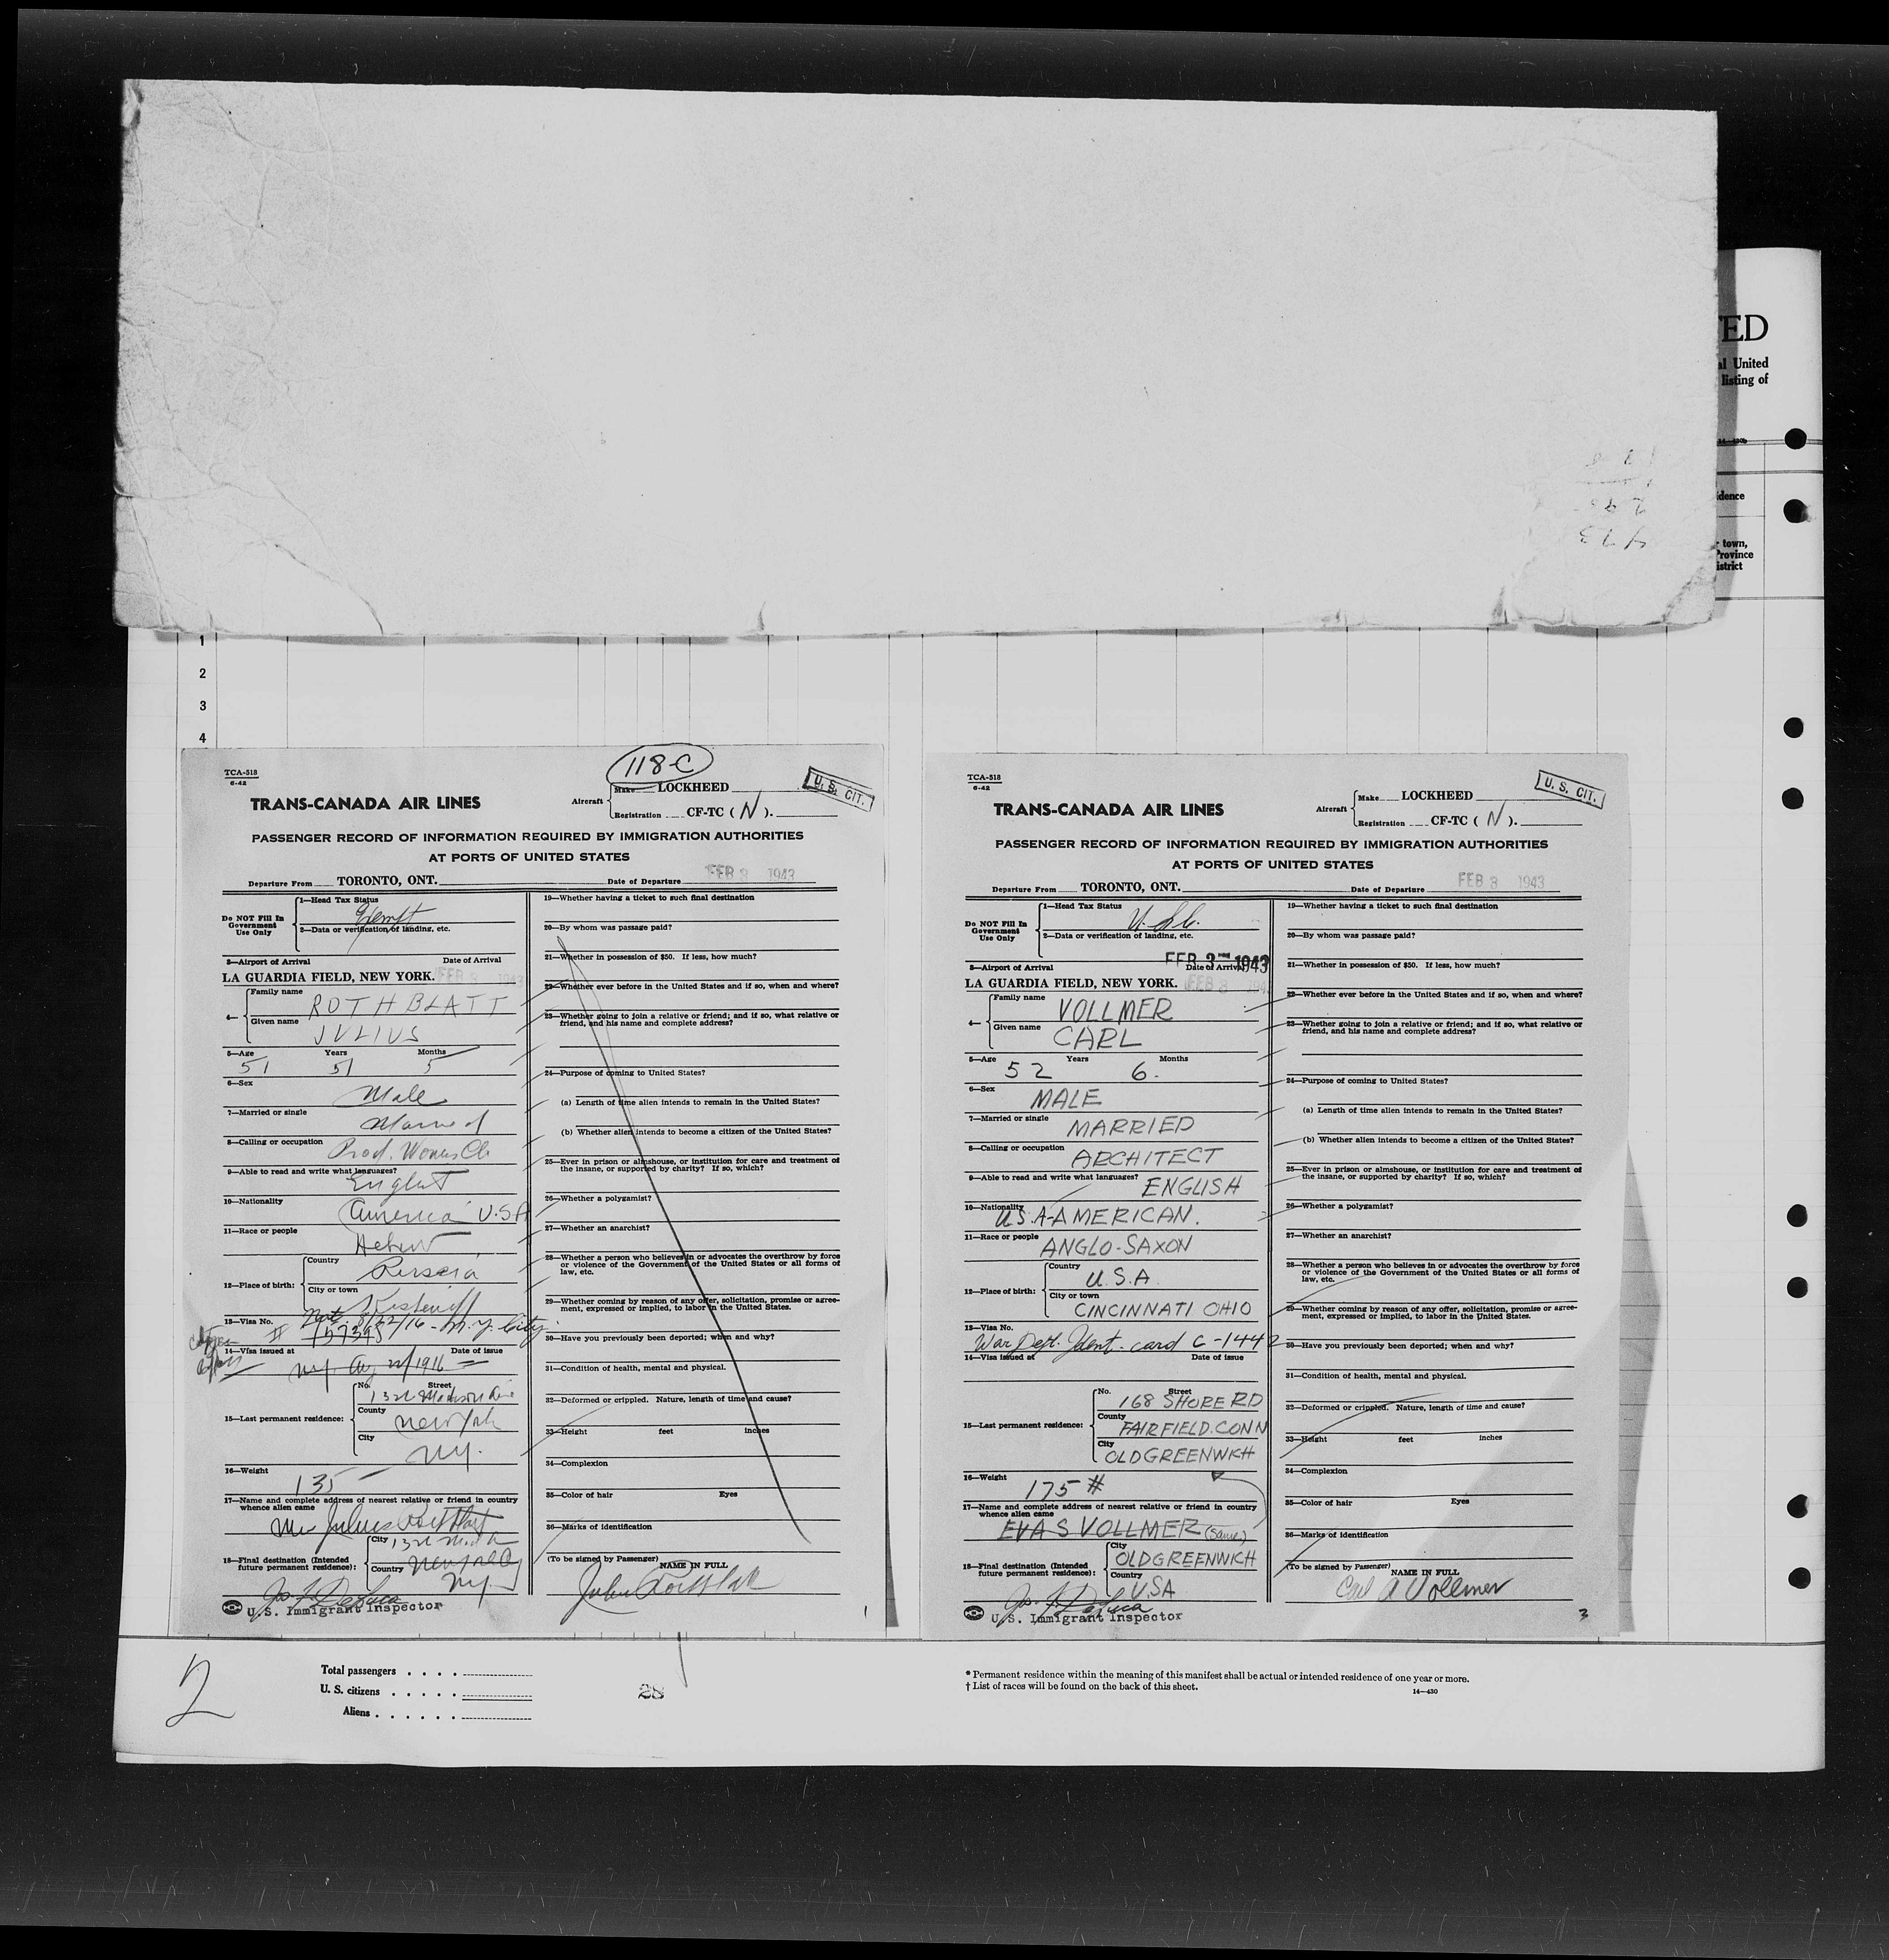 TED
al United
listing of
idence
town,
Province
istrict
1
2
3
4
118-C
TCA-518
6-42
TRANS-CANADA AIR LINES
Aircraft
Make LOCKHEED
Registration CF-TC (N).
U. S. CIT.
PASSENGER RECORD OF INFORMATION REQUIRED BY IMMIGRATION AUTHORITIES
AT PORTS OF UNITED STATES
Departure From TORONTO, ONT. Date of Departure FEB 3 1943
Do NOT Fill In
Government
Use Only
1—Head Tax Status
Exempt
2—Data or verification of landing, etc.
3—Airport of Arrival Date of Arrival
LA GUARDIA FIELD, NEW YORK. FEB 3 1943
4—
Family name ROTHBLATT
Given name JULIUS
5—Age Years Months
51 51 5
6—Sex Male
7—Married or single Married
8—Calling or occupation Prod.
9—Able to read and write what languages?
10—Nationality America U.S.A
11—Race or people Hebrew
12—Place of birth:
Country Russia
City or town
13—Visa No. 8/22/16 - N.Y. City
14—Visa issued at Date of issue
NY Aug 22/1916
15—Last permanent residence:
No. Street
132 Madison Ave
County New York
City NY.
16—Weight 135
17—Name and complete address of nearest relative or friend in country
whence alien came
Julius Rothblatt
18—Final destination (Intended
future permanent residence):
City
Country
NY
U.S. Immigrant Inspector
19—Whether having a ticket to such final destination
20—By whom was passage paid?
21—Whether in possession of $50. If less, how much?
22—Whether ever before in the United States and if so, when and where?
23—Whether going to join a relative or friend; and if so, what relative or
friend, and his name and complete address?
24—Purpose of coming to United States?
(a) Length of time alien intends to remain in the United States?
(b) Whether alien intends to become a citizen of the United States?
25—Ever in prison or almshouse, or institution for care and treatment of
the insane, or supported by charity? If so, which?
26—Whether a polygamist?
27—Whether an anarchist?
28—Whether a person who believes in or advocates the overthrow by force
or violence of the Government of the United States or all forms of
law, etc.
29—Whether coming by reason of any offer, solicitation, promise or agree-
ment, expressed or implied, to labor in the United States.
30—Have you previously been deported; when and why?
31—Condition of health, mental and physical.
32—Deformed or crippled. Nature, length of time and cause?
33—Height feet inches
34—Complexion
35—Color of hair Eyes
36—Marks of identification
(To be signed by Passenger) NAME IN FULL
Julius Rothblatt
1
TCA-518
6-42
TRANS-CANADA AIR LINES
Aircraft
Make LOCKHEED
Registration CF-TC (N).
U. S. CIT.
PASSENGER RECORD OF INFORMATION REQUIRED BY IMMIGRATION AUTHORITIES
AT PORTS OF UNITED STATES
Departure From TORONTO, ONT. Date of Departure FEB 3 1943
Do NOT Fill In
Government
Use Only
1—Head Tax Status
2—Data or verification of landing, etc.
FEB 3 1943
3—Airport of Arrival Date of Arrival
LA GUARDIA FIELD, NEW YORK. FEB 3 194
4—
Family name VOLLMER
Given name CARL
5—Age Years Months
52 6.
6—Sex MALE
7—Married or single MARRIED
8—Calling or occupation ARCHITECT
9—Able to read and write what languages? ENGLISH
10—Nationality U.S.A-AMERICAN.
11—Race or people ANGLO-SAXON
12—Place of birth:
Country U.S.A.
City or town CINCINNATI OHIO
13—Visa No.
War Dept. Ident. card C-1442
14—Visa issued at Date of issue
15—Last permanent residence:
No. Street
168 SHORE RD
County FAIRFIELD. CONN
City OLD GREENWICH
16—Weight 175 #
17—Name and complete address of nearest relative or friend in country
whence alien came
EVA S VOLLMER (same)
18—Final destination (Intended
future permanent residence):
City OLD GREENWICH
Country U.SA
U.S. Immigrant Inspector
19—Whether having a ticket to such final destination
20—By whom was passage paid?
21—Whether in possession of $50. If less, how much?
22—Whether ever before in the United States and if so, when and where?
23—Whether going to join a relative or friend; and if so, what relative or
friend, and his name and complete address?
24—Purpose of coming to United States?
(a) Length of time alien intends to remain in the United States?
(b) Whether alien intends to become a citizen of the United States?
25—Ever in prison or almshouse, or institution for care and treatment of
the insane, or supported by charity? If so, which?
26—Whether a polygamist?
27—Whether an anarchist?
28—Whether a person who believes in or advocates the overthrow by force
or violence of the Government of the United States or all forms of
law, etc.
29—Whether coming by reason of any offer, solicitation, promise or agree-
ment, expressed or implied, to labor in the United States.
30—Have you previously been deported; when and why?
31—Condition of health, mental and physical.
32—Deformed or crippled. Nature, length of time and cause?
33—Height feet inches
34—Complexion
35—Color of hair Eyes
36—Marks of identification
(To be signed by Passenger) NAME IN FULL
Carl A Vollmer
3
2
Total passengers . . . .
U. S. citizens . . . . .
Aliens . . . . . .
28
* Permanent residence within the meaning of this manifest shall be actual or intended residence of one year or more.
† List of races will be found on the back of this sheet.
14—430